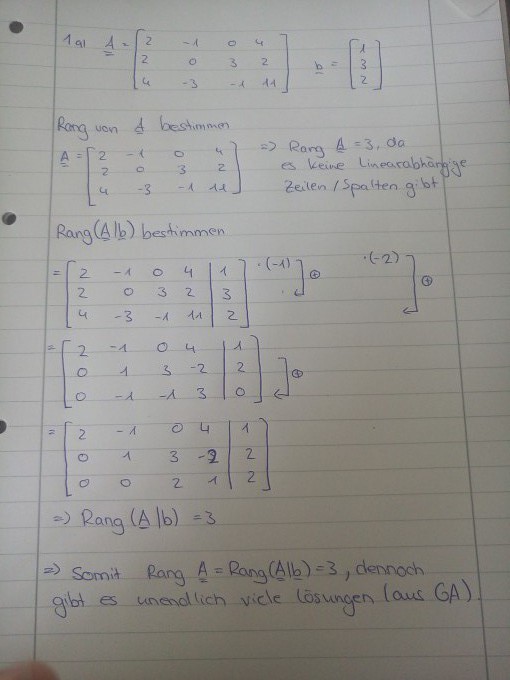 1a) A = [2 -1 0 4 b = [1
2 0 3 2 3
4 -3 -1 11] 2]
Rang von A bestimmen
A = [2 -1 0 4 => Rang A = 3, da
2 0 3 2 es keine Linearabhängige
4 -3 -1 11] Zeilen/Spalten gibt
Rang(A|b) bestimmen
= [2 -1 0 4 | 1 ·(-1) ⊕ ·(-2) ⊕
2 0 3 2 | 3
4 -3 -1 11 | 2]
= [2 -1 0 4 | 1
0 1 3 -2 | 2 ⊕
0 -1 -1 3 | 0]
= [2 -1 0 4 | 1
0 1 3 -2 | 2
0 0 2 1 | 2]
=> Rang(A|b) = 3
=> Somit Rang A = Rang(A|b) = 3, dennoch
gibt es unendlich viele Lösungen (aus GA).